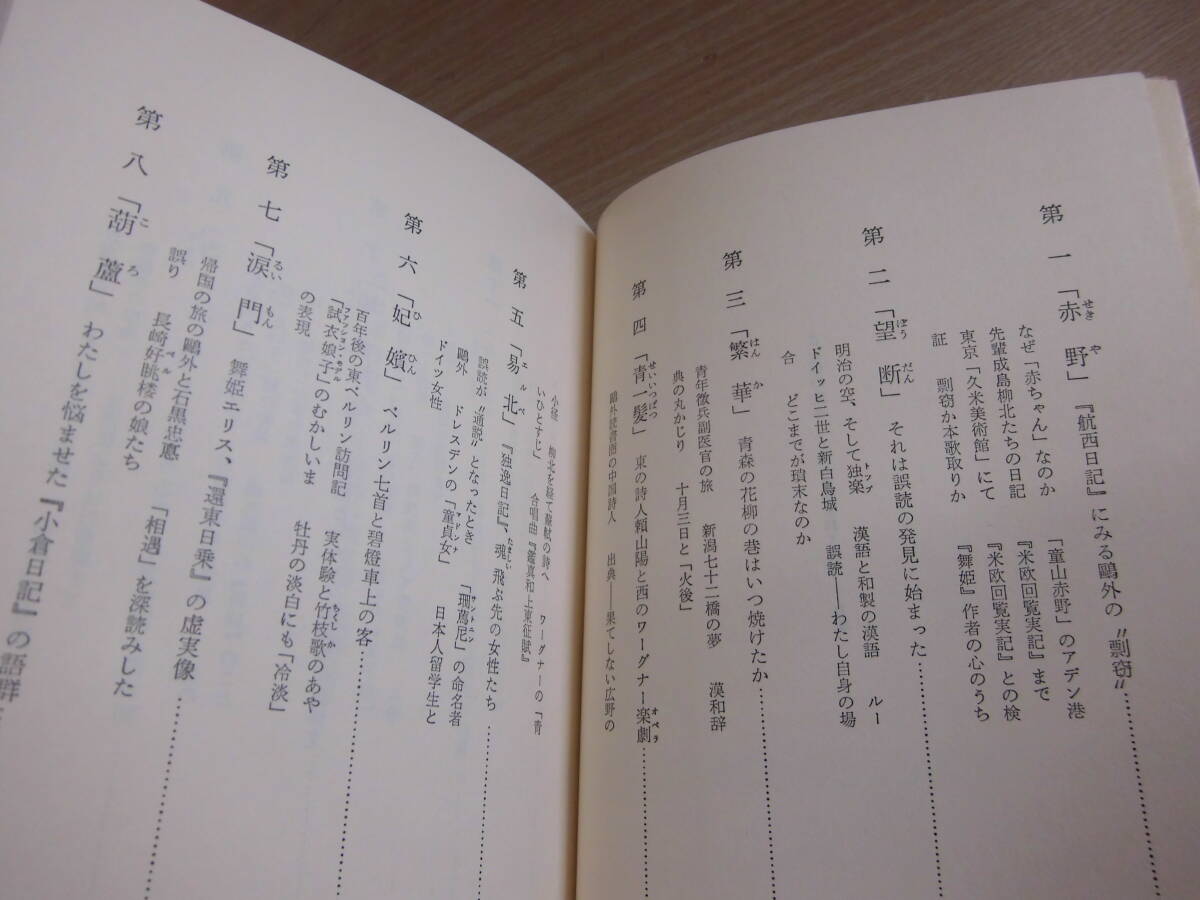 第一「赤野」『航西日記』にみる鷗外の〝剽窃〟……
せきや
なぜ「赤ちゃん」なのか　「童山赤野」のアデン港
先輩成島柳北たちの日記　『米欧回覧実記』まで
東京「久米美術館」にて　『米欧回覧実記』との検
証　剽窃か本歌取りか　『舞姫』作者の心のうち
第二「望断」それは誤読の発見に始まった……
ぼうだん
明治の空、そして独楽　漢語と和製の漢語　ルー
トップ
ドイッヒ二世と新白鳥城　誤読――わたし自身の場
合　どこまでが瑣末なのか
第三「繁華」青森の花柳の巷はいつ焼けたか……
はんか
青年徴兵副医官の旅　新潟七十二橋の夢　漢和辞
典の丸かじり　十月三日と「火後」
第四「青一髪」東の詩人頼山陽と西のワーグナー楽劇……
せいいっぱつ
オペラ
鷗外読書圏の中国詩人　出典――果てしない広野の
小径　柳北を経て蘇軾の詩へ　ワーグナーの「青
いひとすじ」　合唱曲『鑑真和上東征賦』
第五「易北」『独逸日記』、魂飛ぶ先の女性たち……
エルベ
たましい
誤読が〝通説〟となったとき　「珊蔦尼」の命名者
サントニエ
鷗外　ドレスデンの「童貞女」　日本人留学生と
マドンナ
ドイツ女性
第六「妃嬪」ベルリン七首と碧燈車上の客……
ひひん
百年後の東ベルリン訪問記　実体験と竹枝歌のあや
ちくしか
「試衣娘子」のむかしいま　牡丹の淡白にも「冷淡」
ファッション・モデル
の表現
第七「涙門」舞姫エリス、『還東日乗』の虚実像……
るいもん
帰国の旅の鷗外と石黒忠悳　「相遇」を深読みした
誤り　長崎好眺楼の娘たち
ベル
第八「葫蘆」わたしを悩ませた『小倉日記』の語群……
ころ